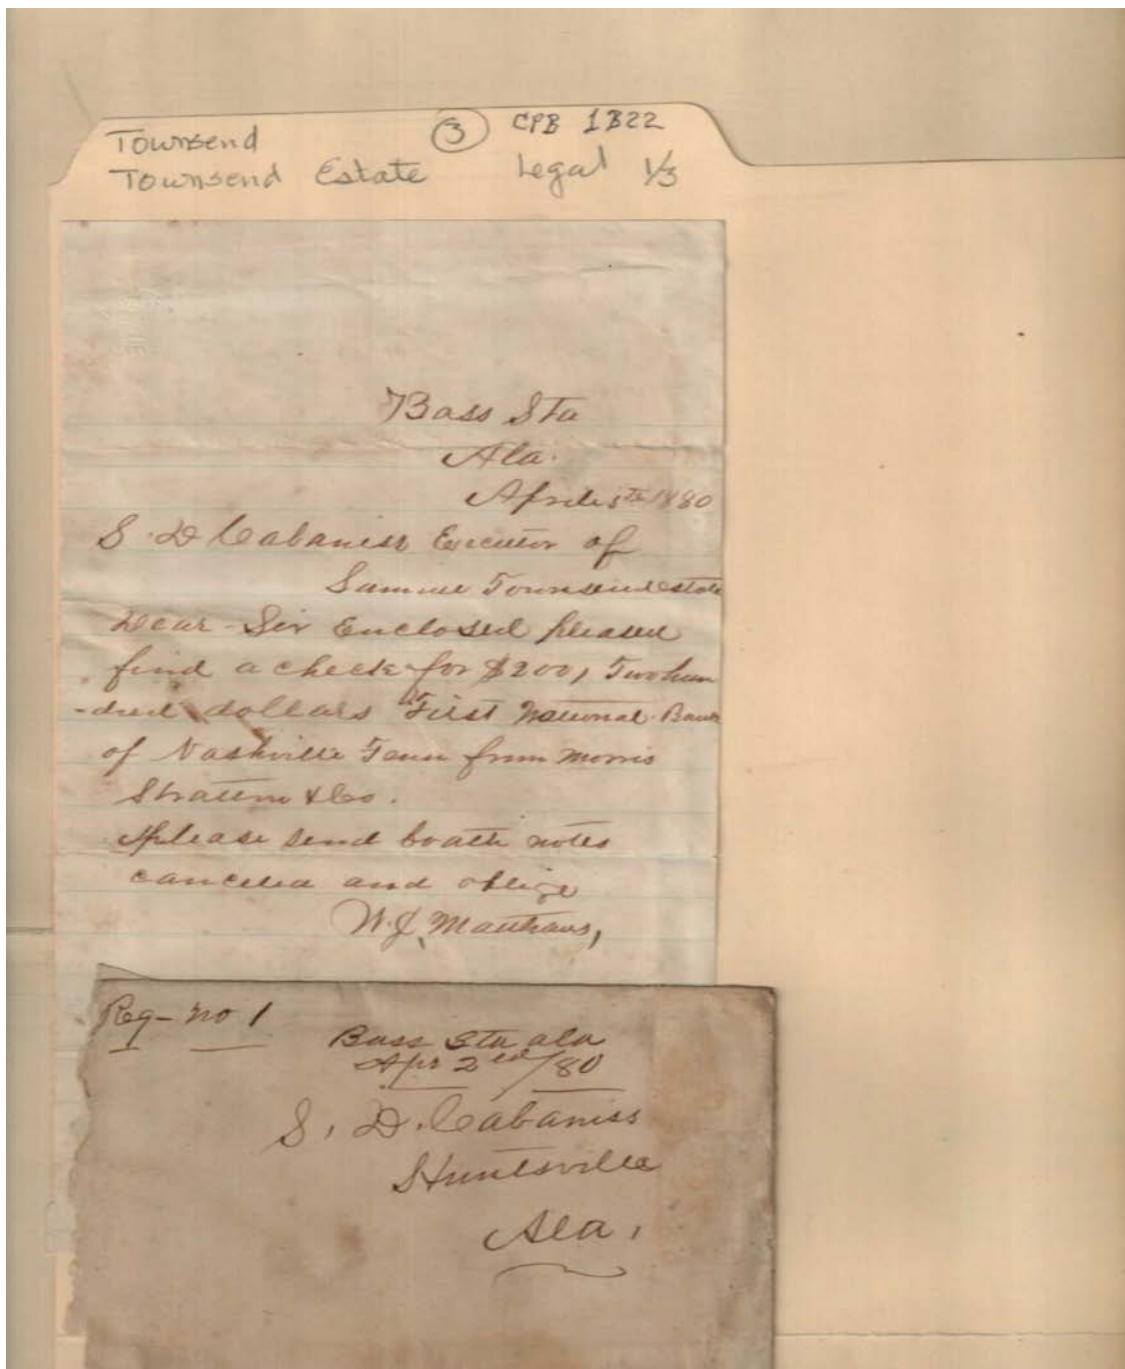 Townsend ③ CPB 1B22
Townsend Estate Legal 1/3
Bass Sta
Ala.
April 1880
S. D Cabaniss Executor of
Samuel Townsend estate
Dear Sir Enclosed pleased
find a check for $200, Two hun
-dred dollars First National Bank
of Nashville Tenn from Morris
Stratton & Co.
please send boath notes
canceled and oblige
W. J. Matthews,
Reg - no 1
Bass Sta ala
Apr 2ed/80
S. D. Cabaniss
Huntsville
Ala,